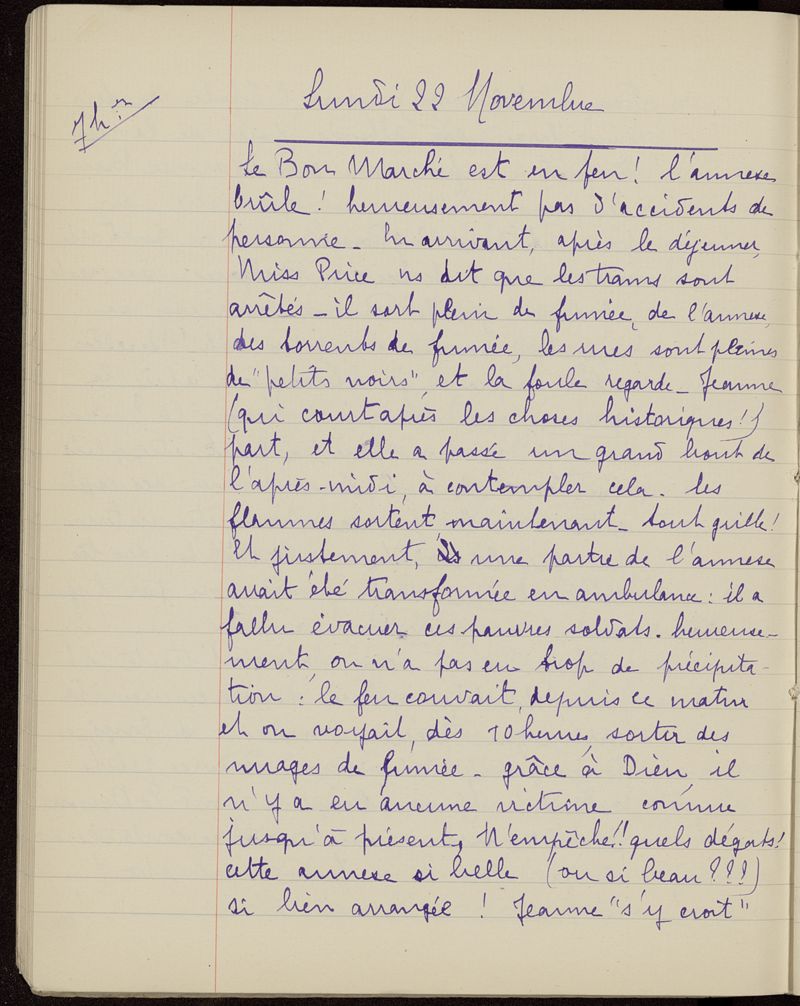 7h.es
Lundi 22 Novembre
Le Bon Marché est en feu! l'annexe
brûle! heureusement pas d'accidents de
personne - En arrivant, après le déjeuner,
Miss Price ns dit que les trams sont
arrêtés - il sort plein de fumée, de l'annexe,
des torrents de fumée, les rues sont pleines
de "petits noirs", et la foule regarde - Jeanne
(qui court après les choses historiques!)
part, et elle a passé un grand bout de
l'après-midi, à contempler cela. les
flammes sortent maintenant - tout grille!
Et justement, une partie de l'annexe
avait été transformée en ambulance: il a
fallu évacuer ces pauvres soldats. heureuse-
ment, on n'a pas eu trop de précipita-
tion: le feu couvait, depuis ce matin
et on voyait, dès 10 heures, sortir des
nuages de fumée - grâce à Dieu, il
n'y a eu aucune victime connue
jusqu'à présent, N'empêche!! quels dégats!
cette annexe si belle (ou si beau???)
si bien arrangée! Jeanne "s'y croit"